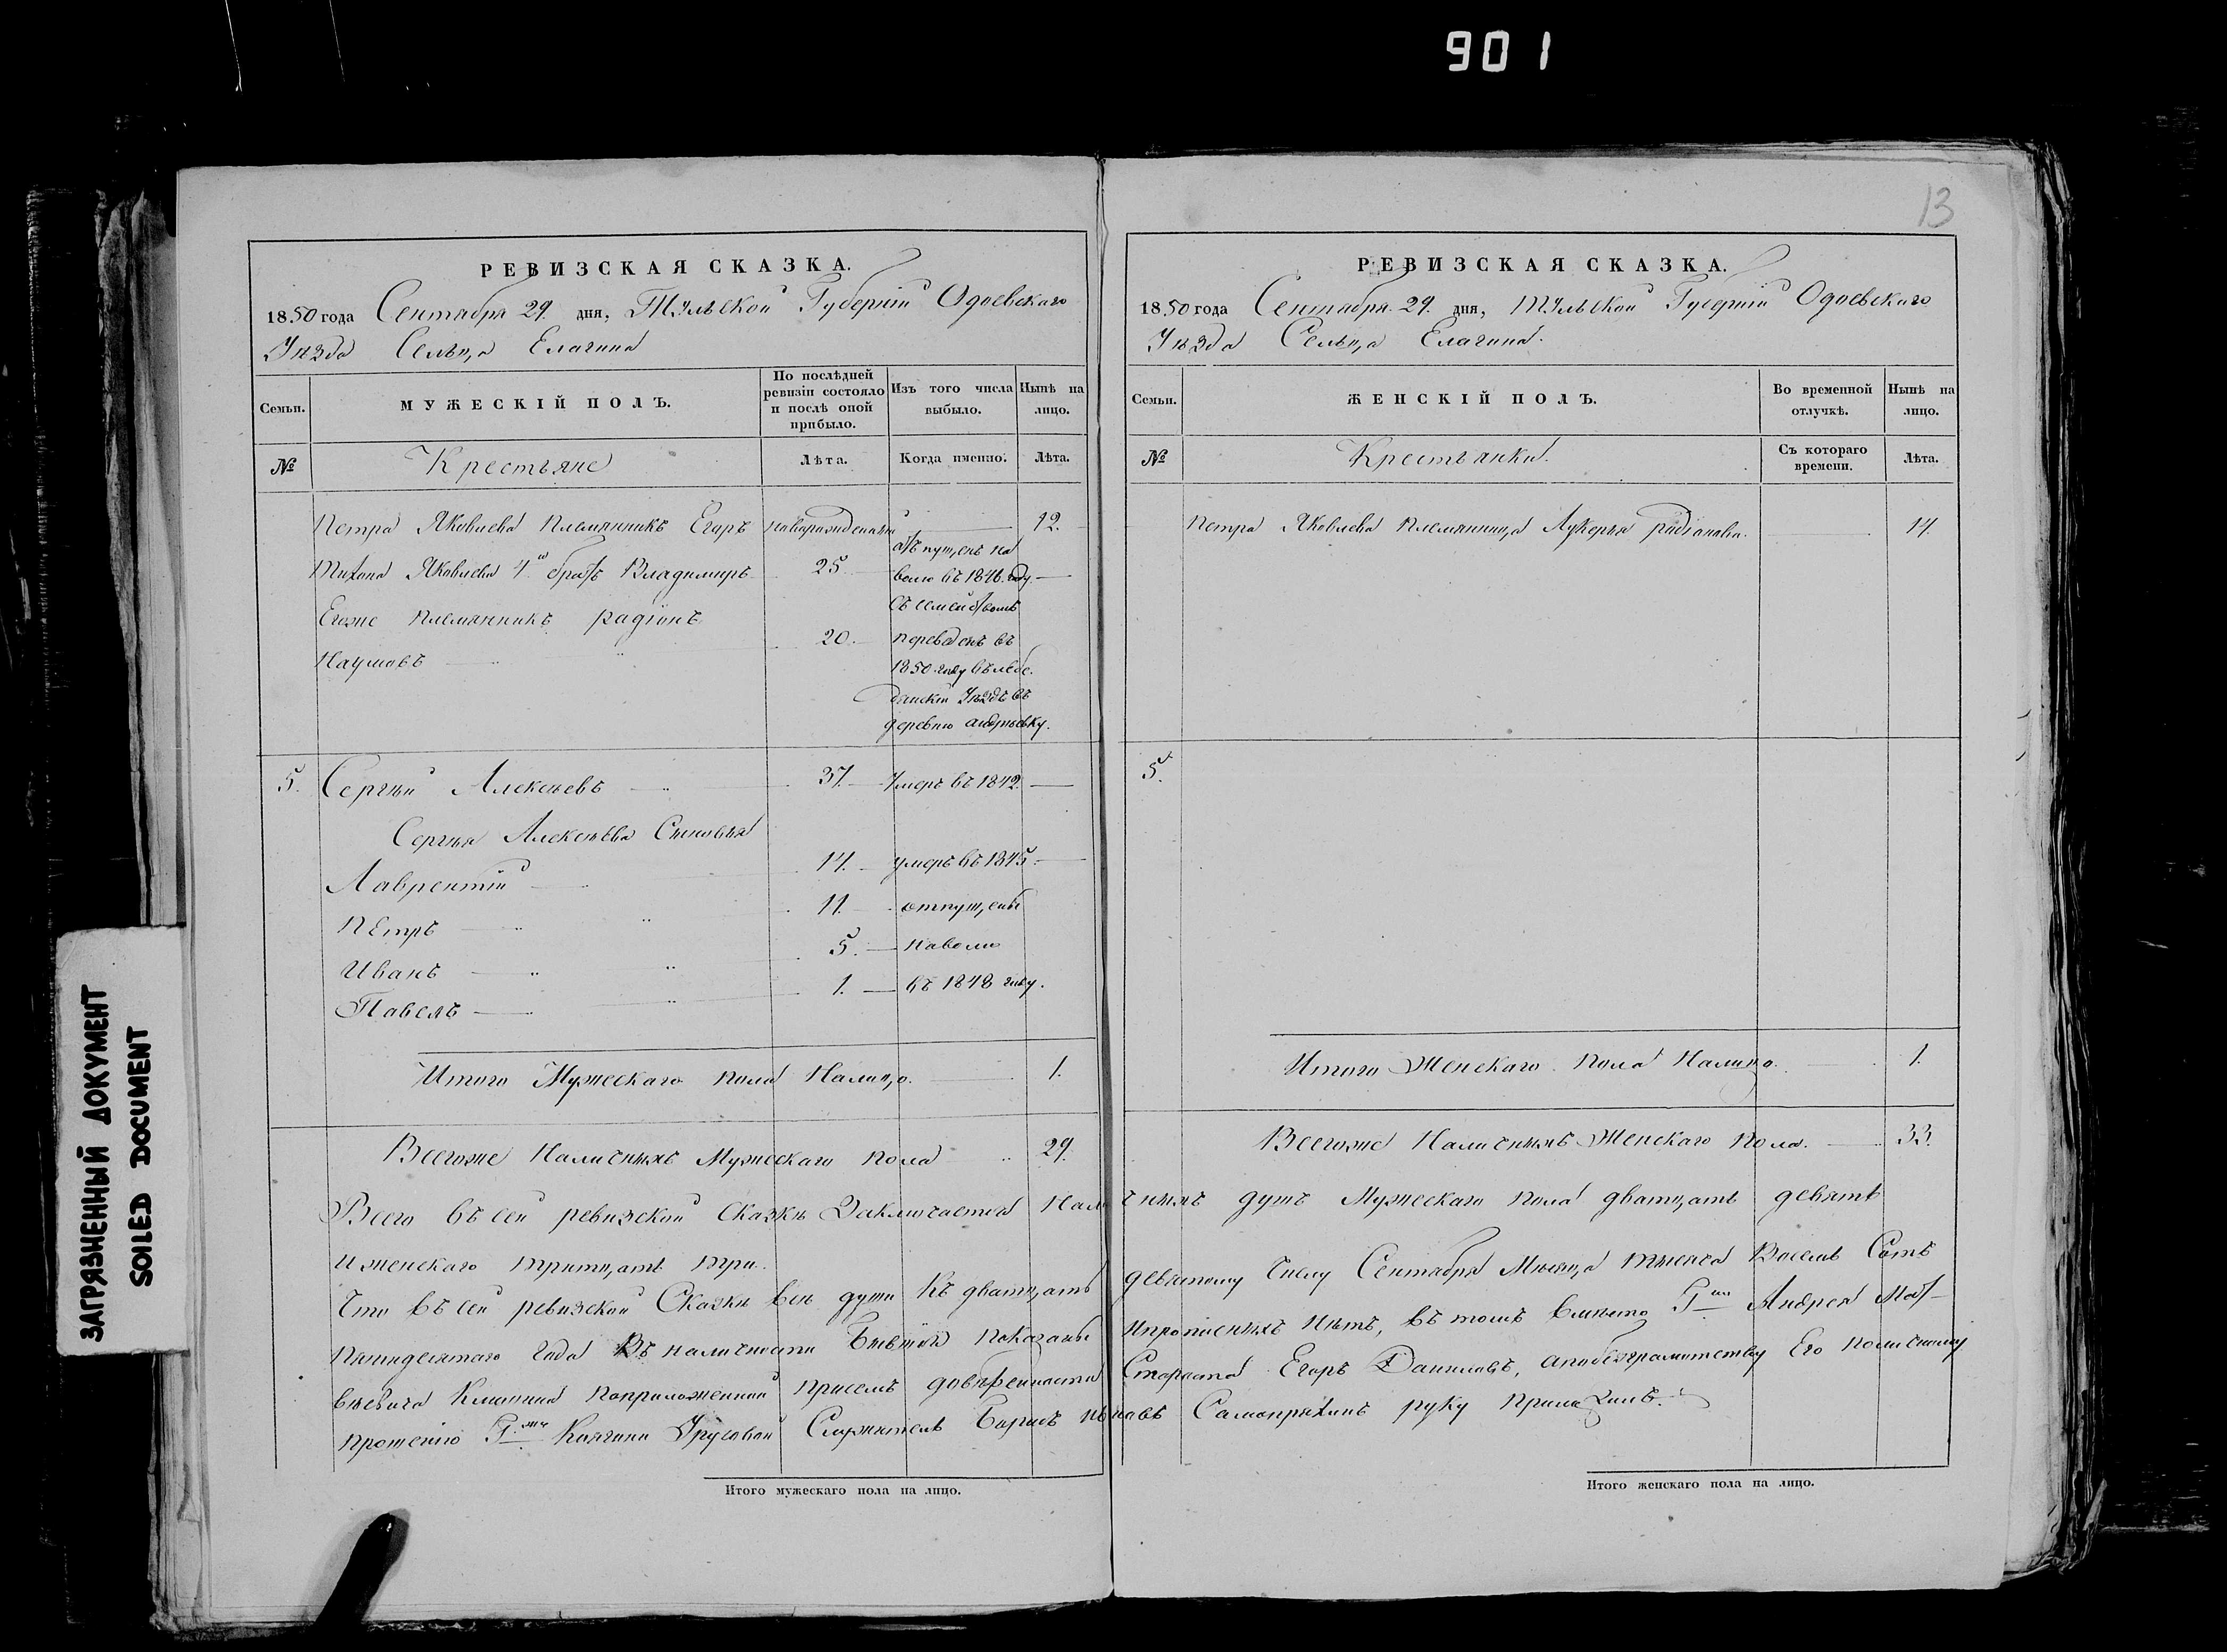 901
13
РЕВИЗСКАЯ СКАЗКА.
1850 года Сентября 29. дня, Тульской Губерніи Одоевскаго
Уѣзда Сельца Елагина
Семьи.
МУЖЕСКІЙ ПОЛЪ.
По послѣдней ревизіи состояло и послѣ оной прибыло.
Изъ того числа выбыло.
Нынѣ на лицо.
№
Крестьяне
Лѣта.
Когда именно.
Лѣта.
Петра Яковлева племянникъ Егаръ новорожденный 12.
Тихона Яковлева 4й братъ Владимиръ 25 отъпущенъ на
волю въ 1846. году
съ семействомъ
Егоже племянникъ радіонъ
Наумовъ 20. переведенъ въ
1850. году въ лебе-
дянскій Уѣздъ въ
деревню андрѣевку.
5. Сергѣй Алексѣевъ 37. Умеръ въ 1842.
Сергѣя Алексѣева Сыновья
Лаврентій 14. умеръ въ 1845.
Петръ 11. отпущены
Иванъ 5. наволю
Павелъ 1. въ 1848 году.
Итого Мужескаго пола Налицо. 1.
Всегоже Наличныхъ Мужескаго пола 29.
РЕВИЗСКАЯ СКАЗКА.
1850 года Сентября 29. дня, Тульской Губерніи Одоевскаго
Уѣзда Сельца Елагина.
Семьи.
ЖЕНСКІЙ ПОЛЪ.
Во временной отлучкѣ.
Нынѣ на лицо.
№
Крестьянки.
Съ котораго времени.
Лѣта.
Петра Яковлева племянница Лукерья радіонова. 14.
5.
Итого Женскаго пола Налицо. 1.
Всегоже Наличныхъ Женскаго пола. 33.
Всего въ сей ревизской Сказкѣ Заключается Наличныхъ душъ Мужескаго пола дватцать девять
и женскаго тритцать три.
Что въ сей ревизской Сказкѣ всѣ души къ дватцать девятому числу Сентября Мѣсяца тысяча Восемь Сотъ
пятидесятаго года въ наличности Бывшія показаны ипрописныхъ нѣтъ, въ томъ вмѣсто Гна Андрея Мат-
вѣевича поприложенной присемъ довѣренности Староста Егоръ Даниловъ, апобезграмотству Его поличному
прошенію Гжи Княгини Урусовой Служитель Борисъ Самопряхинъ руку приложилъ.
Итого мужескаго пола на лицо.
Итого женскаго пола на лицо.
ЗАГРЯЗНЕННЫЙ ДОКУМЕНТ
SOILED DOCUMENT